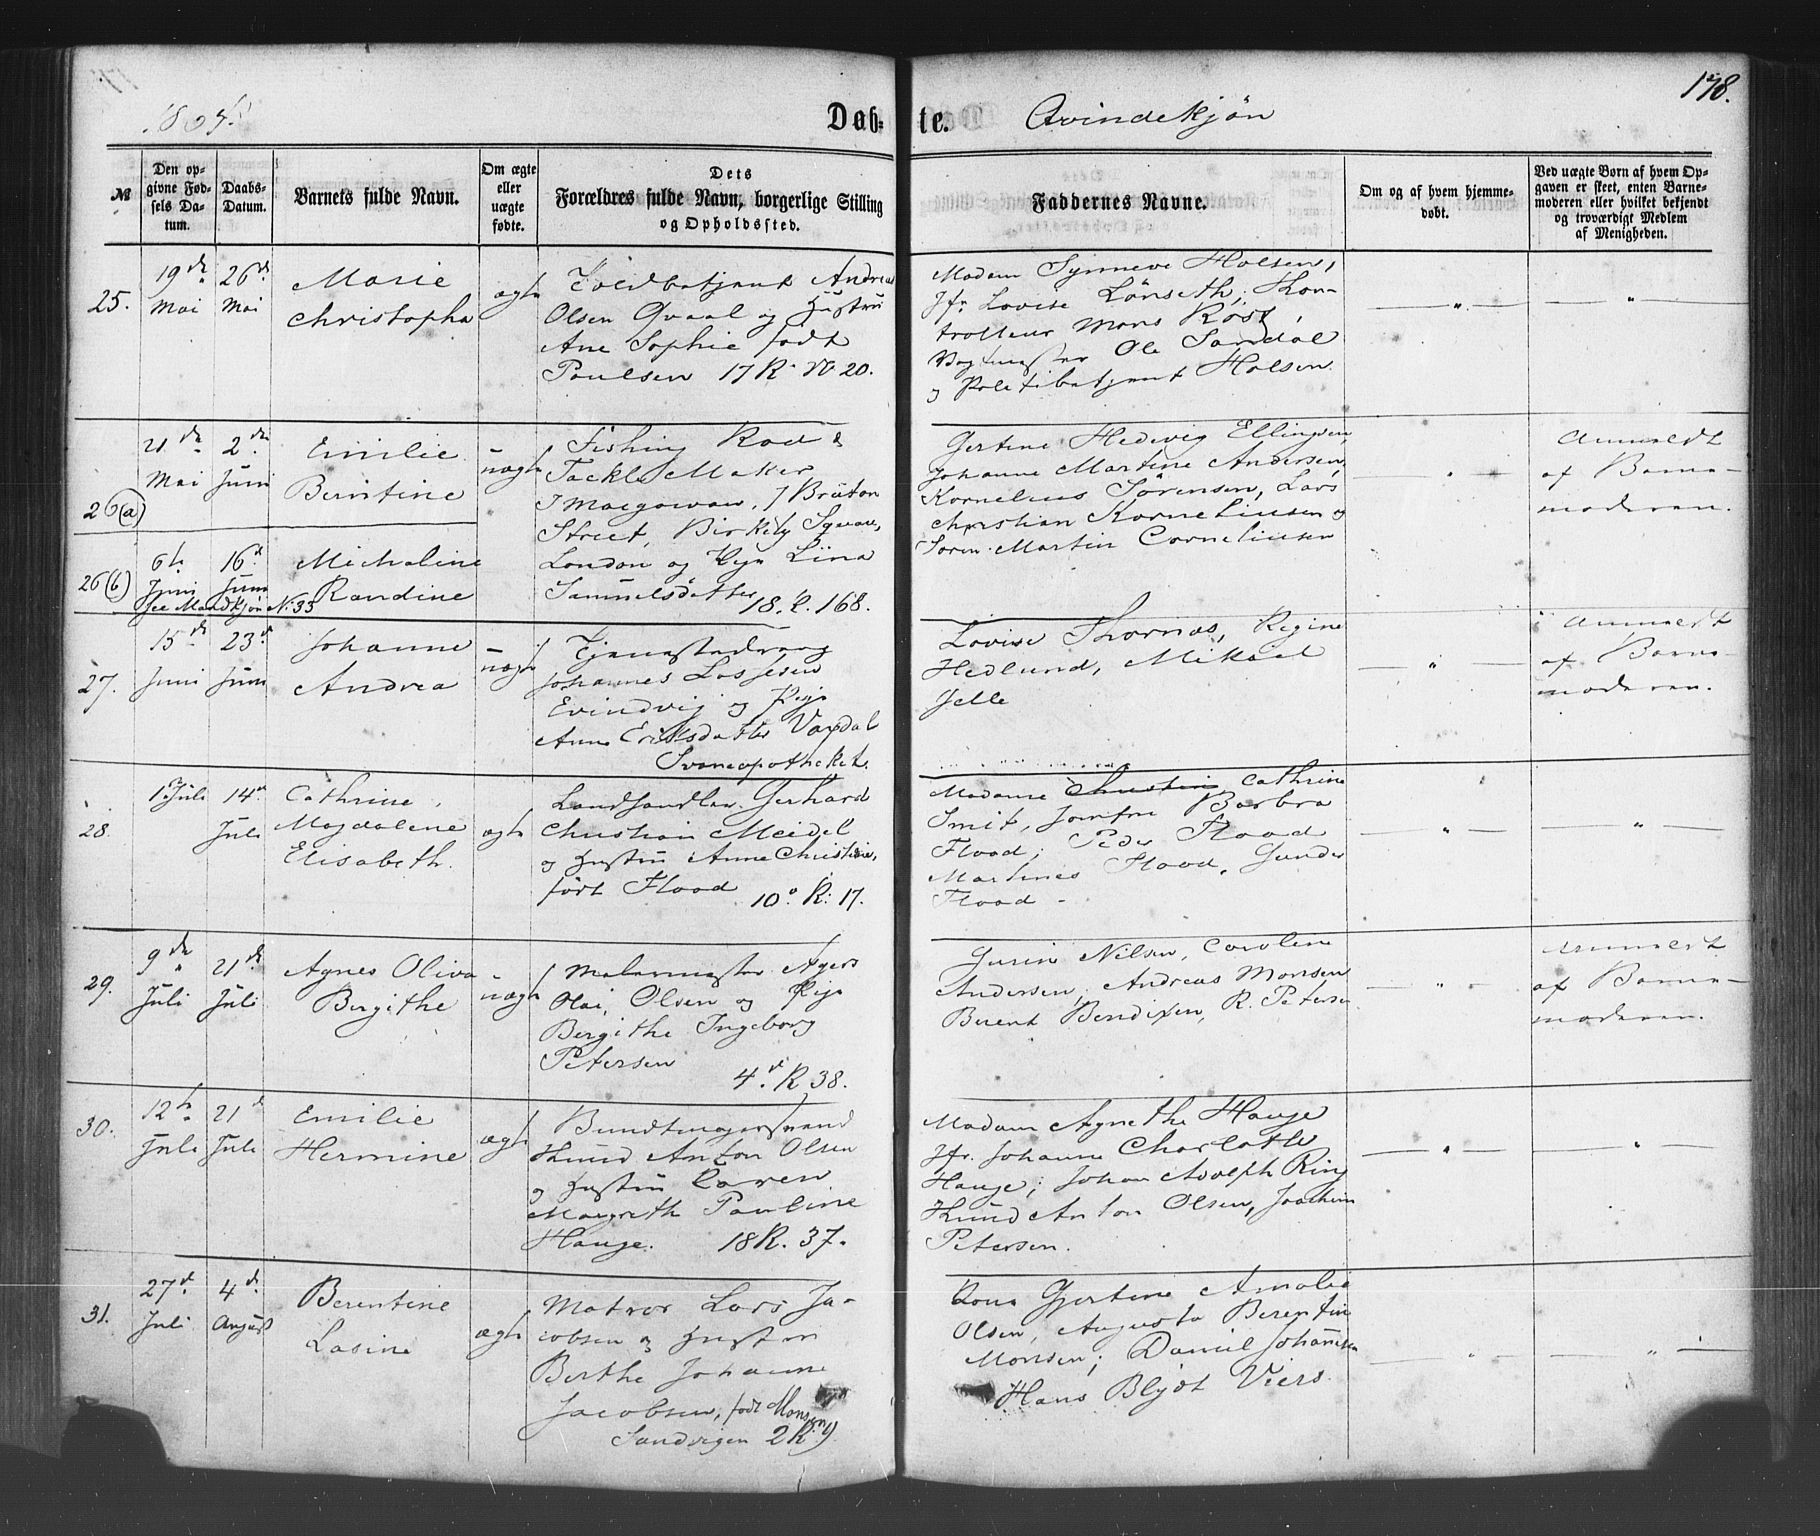 178.
Døb-te. Qvindekjøn
№
Den opgivne Fødsels Datum.
Daabs-Datum.
Barnets fulde Navn.
Om ægte eller uægte fødte.
Dets Forældres fulde Navn, borgerlige Stilling og Opholdssted.
Faddernes Navne.
Om og af hvem hjemmedøbt.
Ved uægte Børn af hvem Opgaven er skeet, enten Barnemoderen eller hvilket bekjendt og troværdigt Medlem af Menigheden.
25.
19de Mai
26de Mai
Marie
Christopha
ægte
Toldbetjent Andreas
Olsen Qvaal og Hustru
Ane Sophie født
Poulsen 17 R. N 20.
Madam Synneve Holsen,
Jfr. Lovise Lönseth; Kon-
trolleur Mons Rost,
Ole Sandal
og Politibetjent Holsen.
26(a)
21de Mai
2de Juni
Emilie
Berntine
uægte
Fishing Rod &
Tackle Maker
J Macgowan, 7 Bruton
Street, Birkely Sqvare,
London og Pige Lina
Samuelsdatter
18. R. 168.
Gertine Hedevig Ellingsen,
Johanne Martine Andersen,
Kornelius Sörensen, Lars
Christian Korneliusen og
Soren Martin Corneliusen
Anmeldt
af Barne-
moderen.
26(b)
6te Juni
16de Juni
Micholine
Randine
See Mandkjön N: 33
27.
15de Juni
23de Juni
Johanne
Andrea
uægte
Tjenestedreng
Johannes Lassesen
Evindvig og Pige
Anne Eriksdatter Vaxdal
Svaneapotheket.
Lovise Thornæs, Regine
Hedlund, Mikael
Jelle
Anmeldt
af Barne-
moderen.
28.
1 Juli
14de Juli
Cathrine,
Magdalene
Elisabeth.
ægte
Landhandler Gerhard
Christian Meidel
og Hustru Anne Christine,
født Flood 10. R: 17.
Madame Christin Cathrine
Smit, Jomfru Barbra
Flood; Peder Flood
Martines Flood, Gunder
Flood -
29.
9de Juli
21de Juli
Agnes Oliva
Bergithe
uægte
Malermester
Olai Olsen og Pige
Bergithe Ingeborg
Petersen
4. R 38.
Gurin Nilsen, Caroline
Andersen, Andreas Monsen
Berent Bendixen, R. Petersen
Anmeldt
af Barne-
moderen.
30.
12te Juli
21de Juli
Emilie
Hermine
ægte
Bundtmagersvend
Knud Anton Olsen
og Hustru Karen
Margreth Pauline
Hauge. 18 R. 37.
Madam Agnethe Hauge
Jfr. Johanne Charlothe
Hauge; Johan Adolph Ring
Knud Anton Olsen, Joachim
Petersen.
31.
27de Juli
4de August
Berentine
Lasine
ægte
Matros Lars Ja-
cobsen og Hustru
Berthe Johanne
Jacobsen, født Monsen
Sandvigen 2 R. 9
Kone Gjertine Amalie
Olsen, Augusta Berentin
Monsen; Daniel Johannesen
Hans Blydt Viers